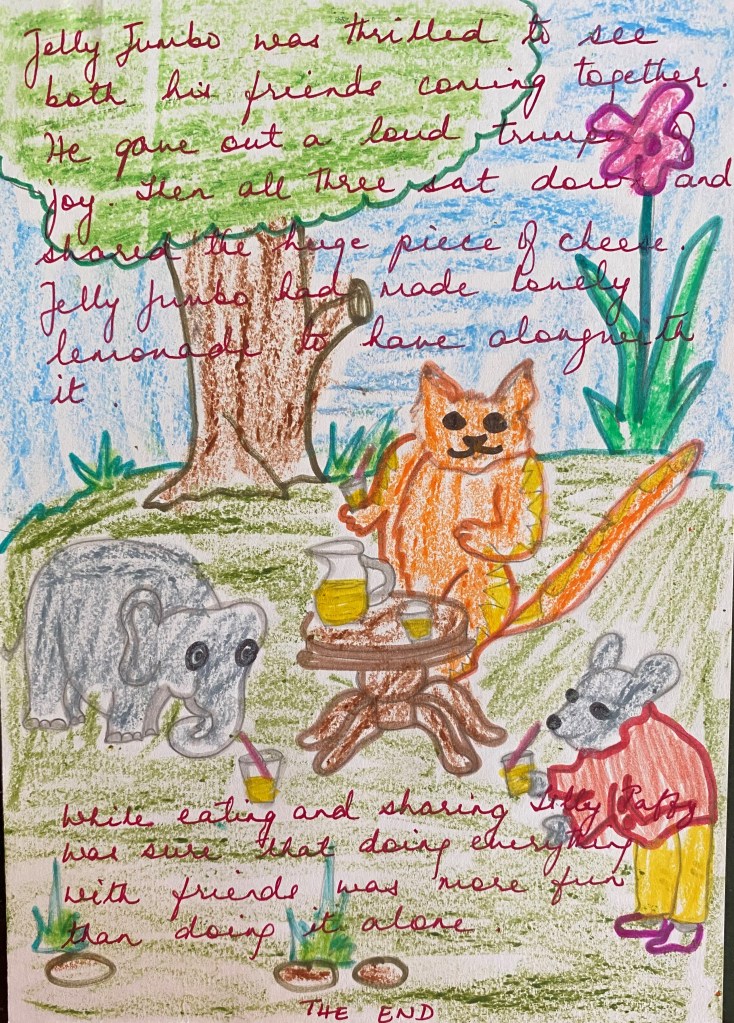 Jelly Jumbo was thrilled to see
both his friends coming together.
He gave out a loud trumpet of
joy. Then all three sat down and
shared the huge piece of cheese.
Jelly Jumbo had made lovely
lemonade to have alongwith
it
While eating and sharing
was sure that doing everything
with friends was more fun
than doing it alone.
THE END